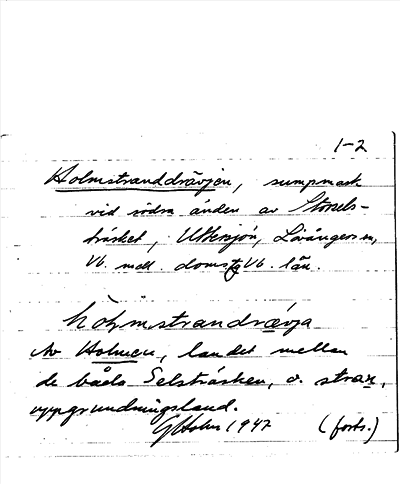 1-2
Holmstranddrävjen, sumpmark
vid södra änden av Storsels-
träsket, Uttersjön, Lövångers sn,
Vb. mell. doms. Vb. län.
holmstrandrävja
Av Holmen, landet mellan
de båda Selsträsken, o. stran,
uppgrundningsland.
GHolm 1947 (forts.)